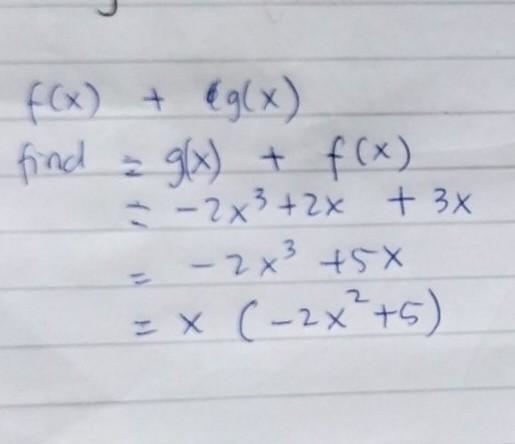 f(x) + g(x)
find = g(x) + f(x)
= -2x³+2x + 3x
= -2x³ +5x
= x (-2x²+5)